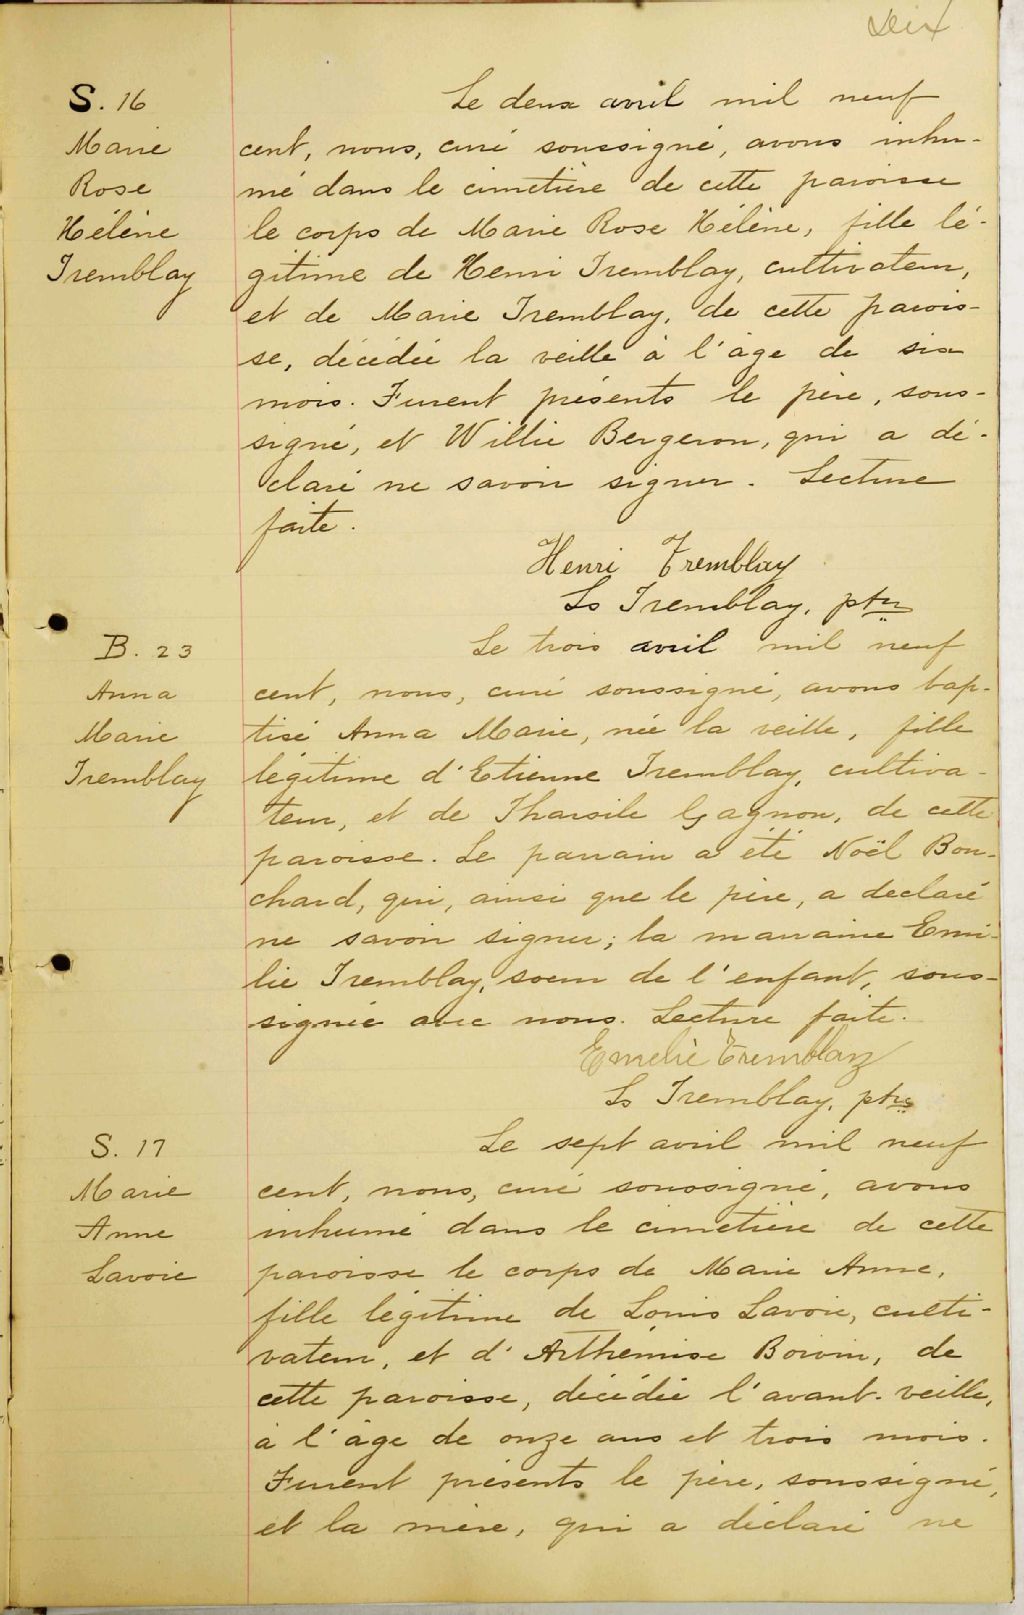 Dix
S. 16
Marie
Rose
Hélène
Tremblay
Le deux avril mil neuf
cent, nous, curé soussigné, avons inhu-
mé dans le cimetière de cette paroisse
le corps de Marie Rose Hélène, fille lé-
gitime de Henri Tremblay, cultivateur,
et de Marie Tremblay, de cette parois-
se, décédée la veille à l'âge de six
mois. Furent présents le père, sous-
signé, et Willie Bergeron, qui a dé-
claré ne savoir signer. Lecture
faite.
Henri Tremblay
Ls Tremblay, ptre
B. 23
Anna
Marie
Tremblay
Le trois avril mil neuf
cent, nous, curé soussigné, avons bap-
tisé Anna Marie, née la veille, fille
légitime d'Etienne Tremblay, cultiva-
teur, et de Tharsile Gagnon, de cette
paroisse. Le parrain a été Noël Bou-
chard, qui, ainsi que le père, a déclaré
ne savoir signer; la marraine Emi-
lie Tremblay, soeur de l'enfant, sous-
signée avec nous. Lecture faite.
Emelie Tremblay
Ls Tremblay, ptre
S. 17
Marie
Anne
Lavoie
Le sept avril mil neuf
cent, nous, curé soussigné, avons
inhumé dans le cimetière de cette
paroisse le corps de Marie Anne,
fille légitime de Louis Lavoie, culti-
vateur, et d'Arthémise Boivin, de
cette paroisse, décédée l'avant-veille,
à l'âge de onze ans et trois mois.
Furent présents le père, soussigné,
et la mère, qui a déclaré ne